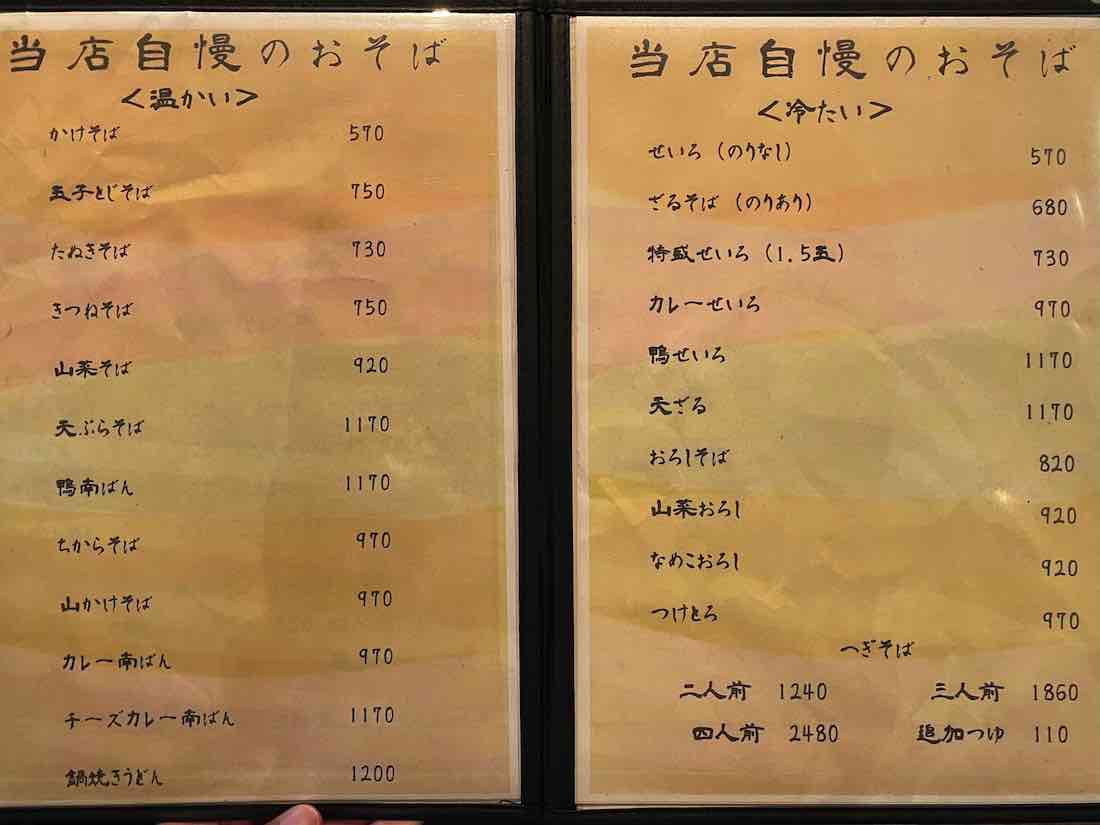 当店自慢のおそば
＜温かい＞
かけそば 570
玉子とじそば 750
たぬきそば 730
きつねそば 750
山菜そば 920
天ぷらそば 1170
鴨南ばん 1170
ちからそば 970
山かけそば 970
カレー南ばん 970
チーズカレー南ばん 1170
鍋焼きうどん 1200
当店自慢のおそば
＜冷たい＞
せいろ（のりなし） 570
ざるそば（のりあり） 680
特盛せいろ（1.5玉） 730
カレーせいろ 970
鴨せいろ 1170
天ざる 1170
おろしそば 820
山菜おろし 920
なめこおろし 920
つけとろ 970
へぎそば
二人前 1240 三人前 1860
四人前 2480 追加つゆ 110